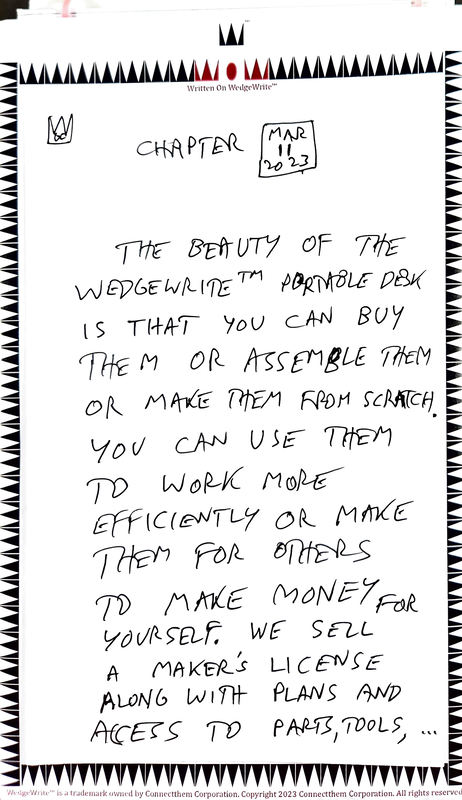 Written On WedgeWrite™
W
CHAPTER
MAR
11
2023
THE BEAUTY OF THE
WEDGEWRITE™ PORTABLE DESK
IS THAT YOU CAN BUY
THEM OR ASSEMBLE THEM
OR MAKE THEM FROM SCRATCH.
YOU CAN USE THEM
TO WORK MORE
EFFICIENTLY OR MAKE
THEM FOR OTHERS
TO MAKE MONEY FOR
YOURSELF. WE SELL
A MAKER'S LICENSE
ALONG WITH PLANS AND
ACCESS TO PARTS, TOOLS, ...
WedgeWrite™ is a trademark owned by Connectthem Corporation. Copyright 2023 Connectthem Corporation. All rights reserved